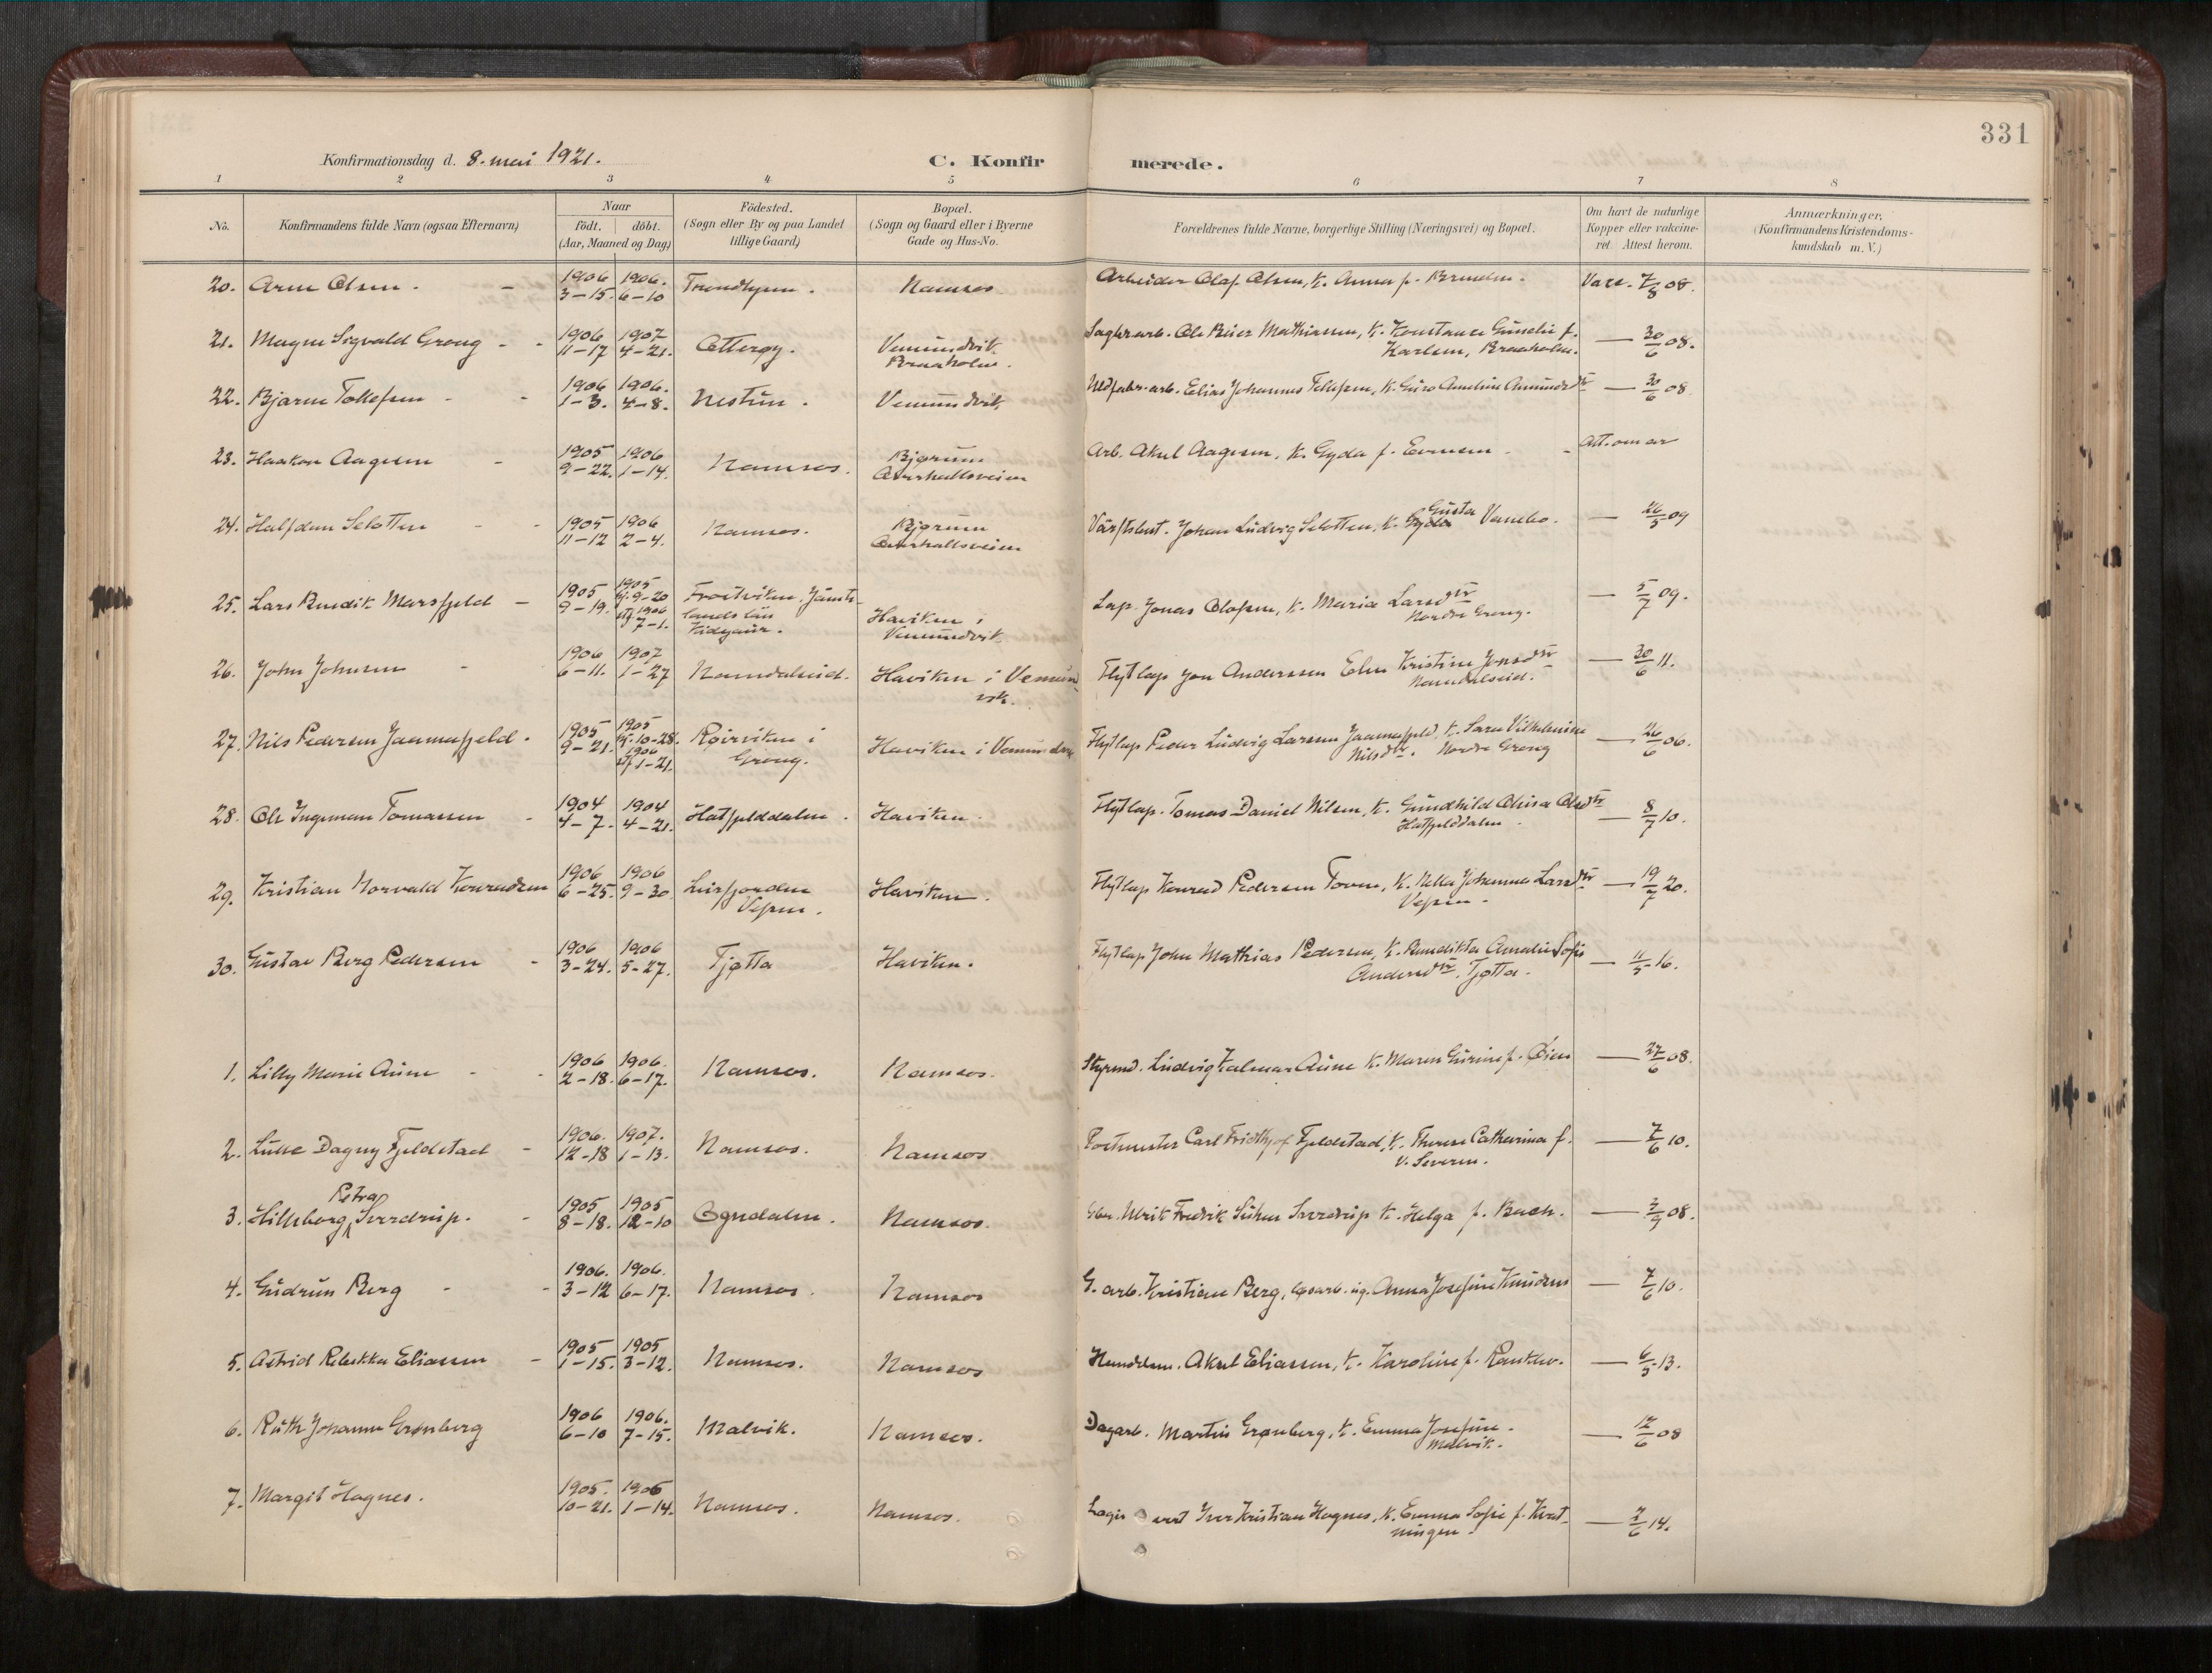 331
Konfirmationsdag d. 8. mai 1921.
C. Konfirmerede.
1 2 3 4 5 6 7 8
No.
Konfirmandens fulde Navn (ogsaa Efternavn)
Naar
födt. döbt.
(Aar, Maaned og Dag)
Födested.
(Sogn eller By og paa Landet
tillige Gaard)
Bopæl.
(Sogn og Gaard eller i Byerne
Gade og Hus-No.
Forældrenes fulde Navne, borgerlige Stilling (Næringsvei) og Bopæl.
Om havt de naturlige
Kopper eller vakcine-
ret. Attest herom.
Anmærkninger.
(Konfirmandens Kristendoms-
kundskab m. V.)
20. Arne Olsen. 1906 3-15. 1906. 6-10 Trondhjem. Namsos. Arbeider Olaf Olsen, k. Anna f. Vacc. 7/8 08.
21. Magne Sigvald Grong 1906 11-17 1907 4-21. Otterøy. Vemundvik. Braaholm. Sagbr.arb. Ole Peter Mathiassen, k. Konstance f. Karlsen, Braaholm. — 30/6 08.
22. Bjarne Tollefsen 1906 1-3. 1906. 4-8. Nestun. Vemundvik Elias Johannes Tollefsen, k. Guro Ameline — 30/6 08
23. Haakon Aagesen 1905 9-22. 1906 1-14. Namsos. Bjørum Overhallsveien Arb. Aksel Aagesen, k. Gyda f. Evensen Att. om ar
24. Halfdan Slotten 1905 11-12 1906 2-4. Namsos. Bjørum Overhallsveien Johan Ludvig Slotten, k. Gusta Vanebo. — 26/5 09
25. Lars Bendik Marsfjeld 1905 9-19. 1905 hj. 9-20 stf 1906 7-1. Frostviken, Jämtlandslän Haviken i Vemundvik Lap. Jonas Olofsen, k. Maria Larsdtr Nordre Grong. — 5/7 09.
26. John Johnsen 1906 6-11. 1907 1-27 Namdalseid. Haviken i Vemundvik. Flytlap Jon Anderssen Kristine Jonsdtr Namdalseid. — 30/6 11.
27. Nils Pedersen Jaamafjeld. 1905 9-21. 1905 hj. 10-28. 1906 stf 1-21. Røirviken i Grong. Haviken i Vemundvik Flytlap Peder Ludvig Larsen Jaamafjeld, k. Sara Vilhelmine Nilsdtr. Nordre Grong — 26/6 06.
28. Ole Ingeman Tomassen 1904 4-7. 1904 4-21. Hatfjelddalen. Haviken. Flytlap. Tomas Daniel Nilsen, k. Gundhild Olsdtr Hatfjelddalen. — 8/7 10.
29. Kristian Norvald Konradsen 1906 6-25. 1906 9-30 Leirfjorden Vefsen. Haviken. Flytlap Konrad Pedersen Toven, k. Johanna Larsdtr Vefsen. — 19/7 20.
30. Gustav Berg Pedersen 1906 3-24. 1906 5-27. Tjøtta Haviken. Flytlap John Mathias Pedersen, k. Benedikta Amalie Sofie Andersdtr, Tjøtta. — 11/5 16.
1. Lilly Marie Aune 1906 2-18. 1906. 6-17. Namsos. Namsos. Styrmd. Ludvig Halmar Aune k. Maren Gurine f. Øien — 27/6 08.
2. Lulle Dagny Fjeldstad 1906. 12-18 1907. 1-13. Namsos. Namsos Postmester Carl Fridthjof Fjeldstad, k. Therese Catharina f. v. Severen. — 7/6 10.
3. Hilleborg Petra Sverdrup. 1905 8-18. 1905 12-10 Ogndalen. Namsos. Ulrik Fredrik Suhm Sverdrup k. Helga f. Bach. — 2/9 08.
4. Gudrun Berg 1906. 3-12 1906. 6-17. Namsos. Namsos G. arb. Kristian Berg, løsarb. ug. Anna Josefine Knudsen — 7/6 10.
5. Astrid Rebekka Eliassen 1905 1-15. 1905 3-12. Namsos. Namsos Handelsm. Aksel Eliassen, k. Karoline f. — 6/5 13.
6. Ruth Johanne Grønberg 1906 6-10 1906. 7-15. Malvik. Namsos. Dagarb. Martin Grønberg, k. Emma Josefine. Malvik. — 12/6 08
7. Margit Hagnes. 1905. 10-21. 1906 1-14. Namsos. Namsos. Logivert Iver Kristian Hagnes, k. Emma Sofie f. Kvatningen. — 7/6 14.